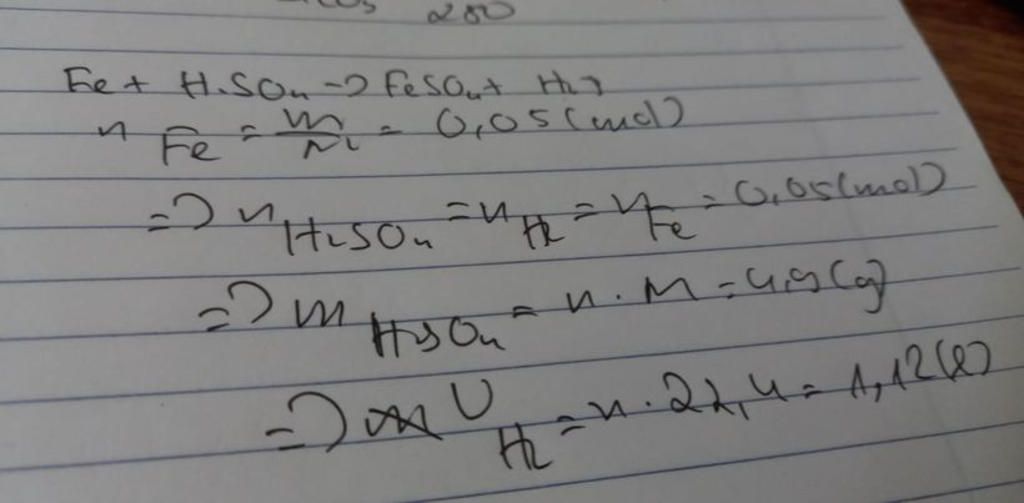 280
Fe + H₂SO₄ -> FeSO₄ + H₂↑
n Fe = m/M = 0,05 (mol)
=> n H₂SO₄ = n H₂ = n Fe = 0,05 (mol)
=> m H₂SO₄ = n . M = 4,9 (g)
=> V H₂ = n . 22,4 = 1,12 (l)